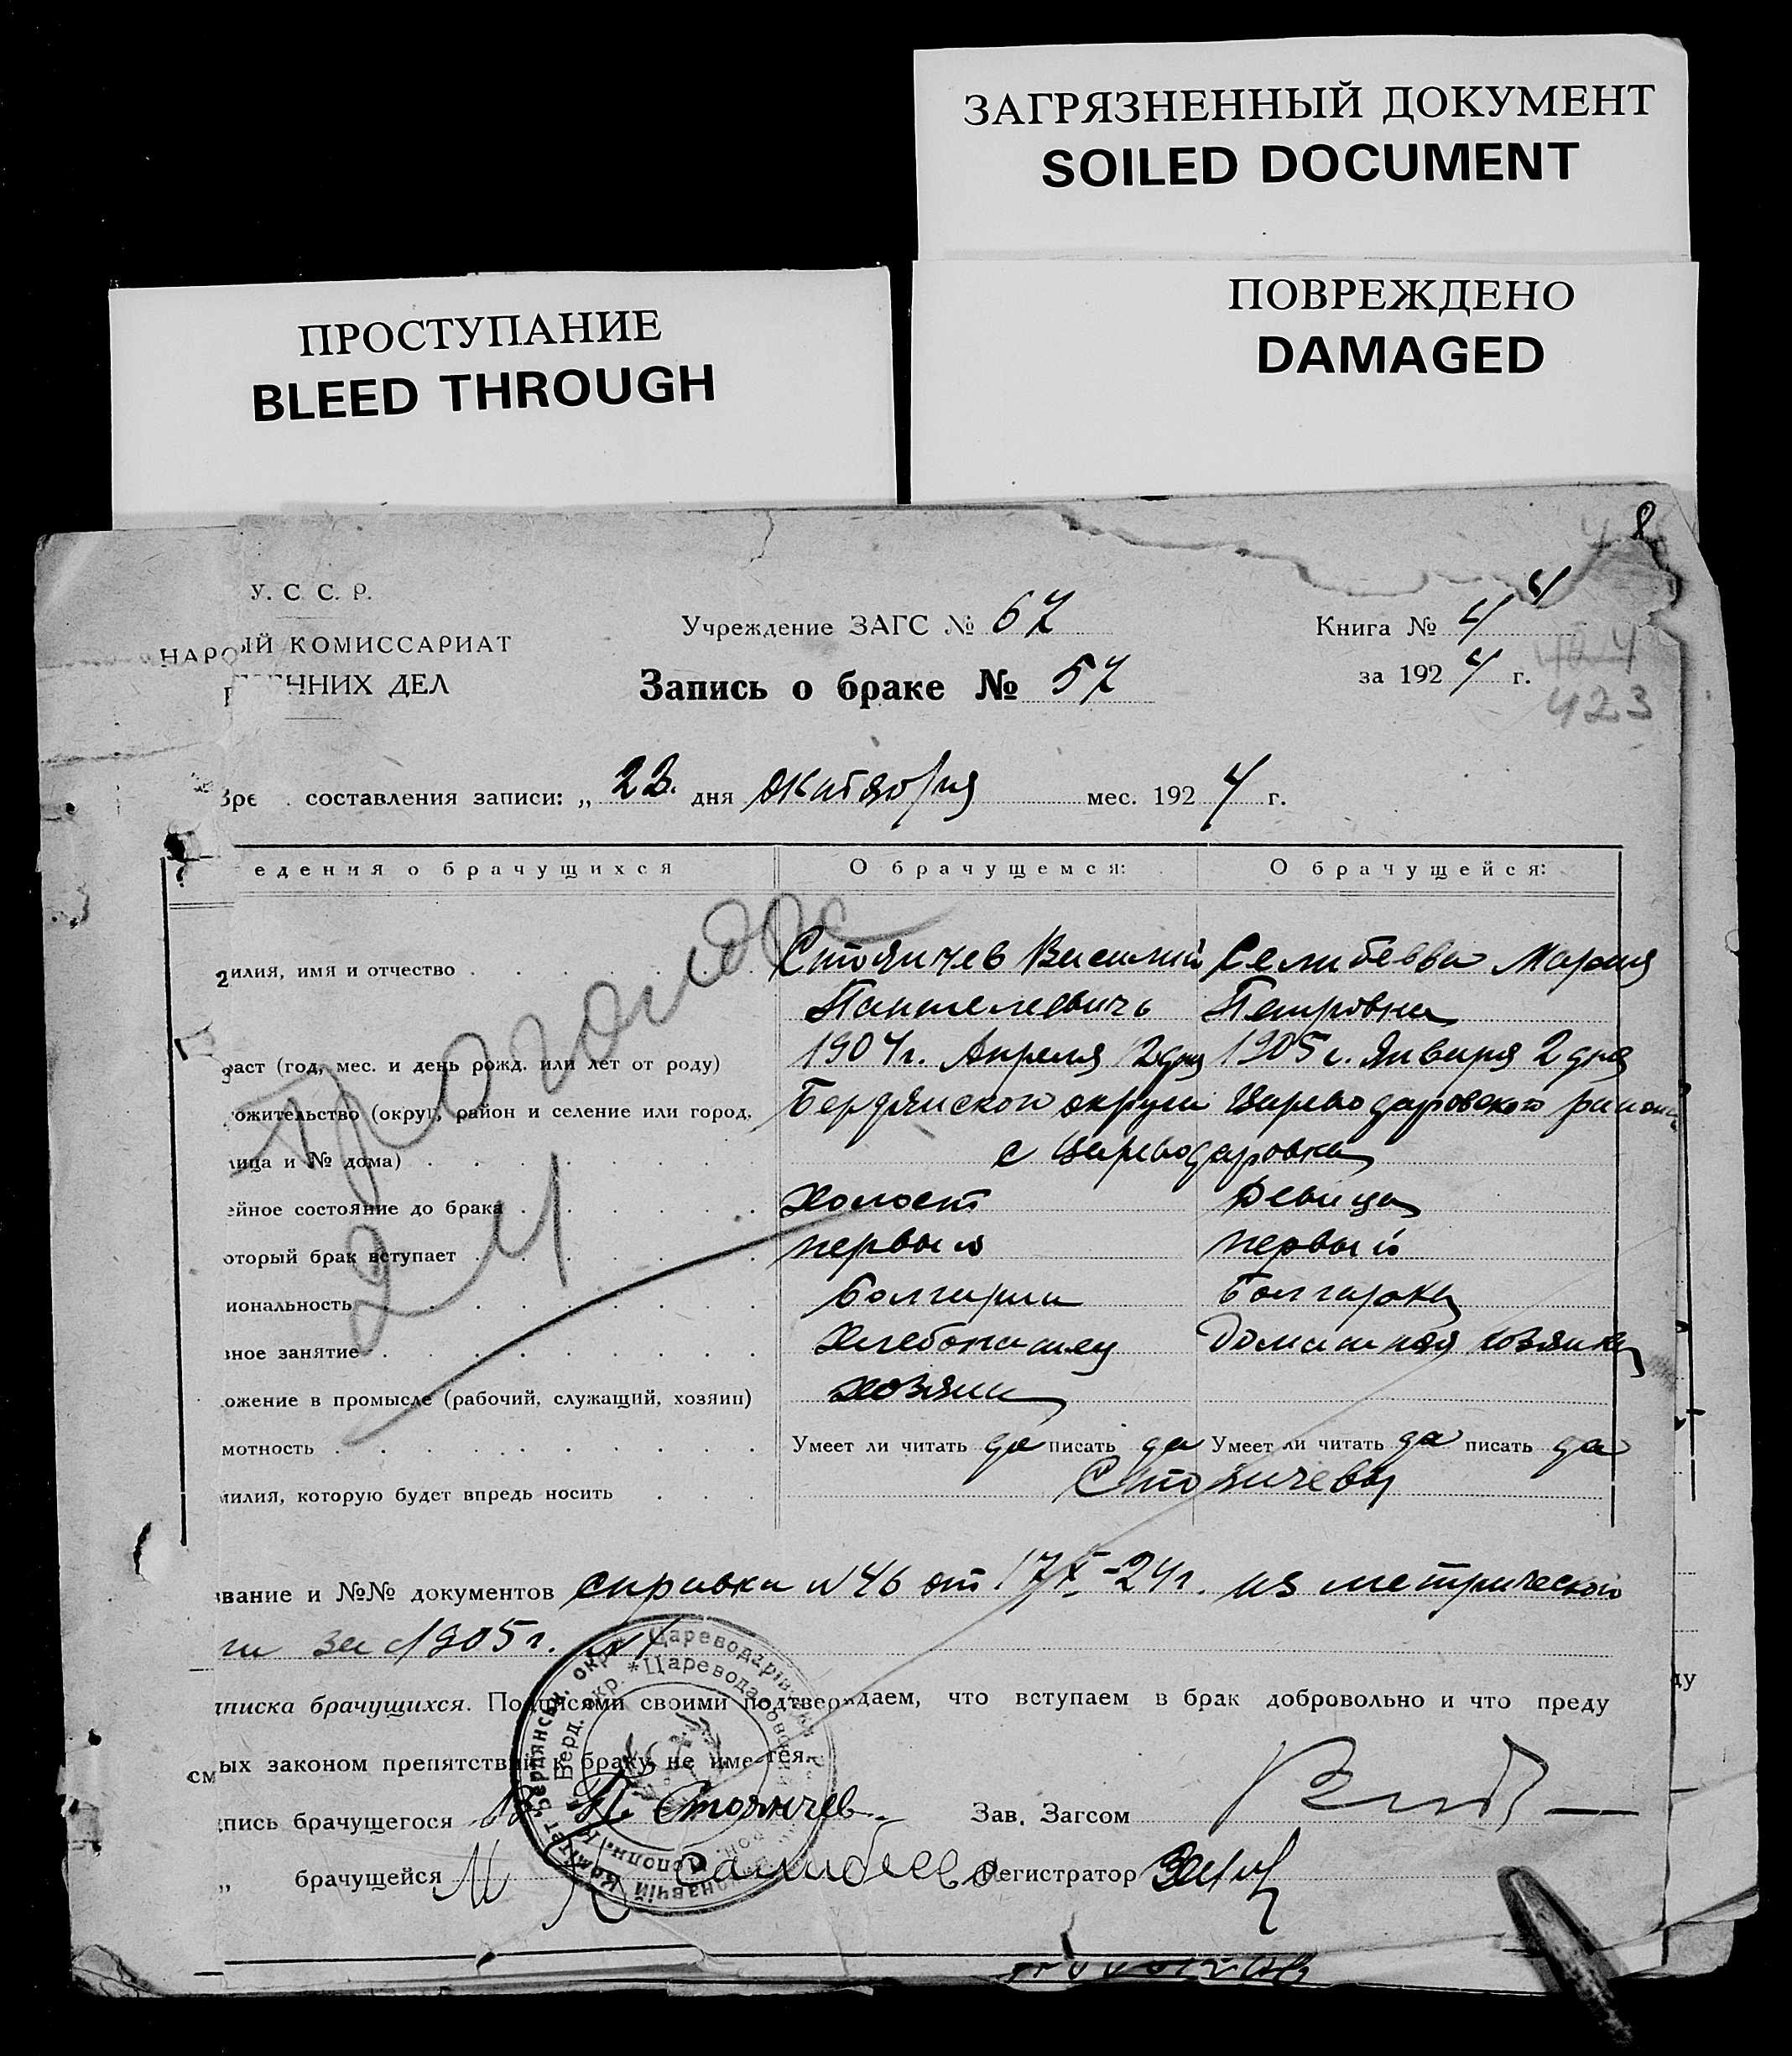 ЗАГРЯЗНЕННЫЙ ДОКУМЕНТ
SOILED DOCUMENT
ПРОСТУПАНИЕ
BLEED THROUGH
ПОВРЕЖДЕНО
DAMAGED
8
У. С. С. Р.
НАРО ЫЙ КОМИССАРИАТ
ЕННИХ ДЕЛ
Учреждение ЗАГС № 67
Запись о браке № 57
Книга № 4
за 1924 г.
423
Вре составления записи: „ 23. дня октября мес. 1924 г.
едения о брачущихся О брачущемся: О брачущейся:
илия, имя и отчество Стоянчев Василий Селибеева Мария
Пантелевичь Петровна
раст (год, мес. и день рожд. или лет от роду) 1904г. Апреля 12 дня 1905 г. Января 2 дня
ожительство (округ, район и селение или город, Бердянского округа Цареводаровского района
лица и № дома) с Цареводаровка
ейное состояние до брака холост девица
оторый брак вступает первый первый
иональность болгарин болгарка
вное занятие хлебопашец Домашняя хозяйка
ожение в промысле (рабочий, служащий, хозяин) хозяин
мотность Умеет ли читать да писать да Умеет ли читать да писать да
милия, которую будет впредь носить Стоянчевы
24
звание и №№ документов справка №46 от 17/X-24г. из метрической
ги за 1905 г.
дписка брачущихся. Подписями своими подтверждаем, что вступаем в брак добровольно и что преду
см ых законом препятствий к браку, не имеется.
дпись брачущегося В. П. Стоянчев. Зав. Загсом
„ брачущейся М Салибеева Регистратор